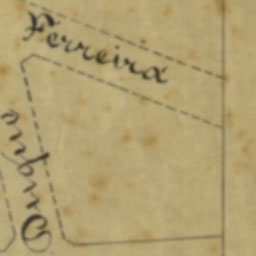 Ferreira
Duque